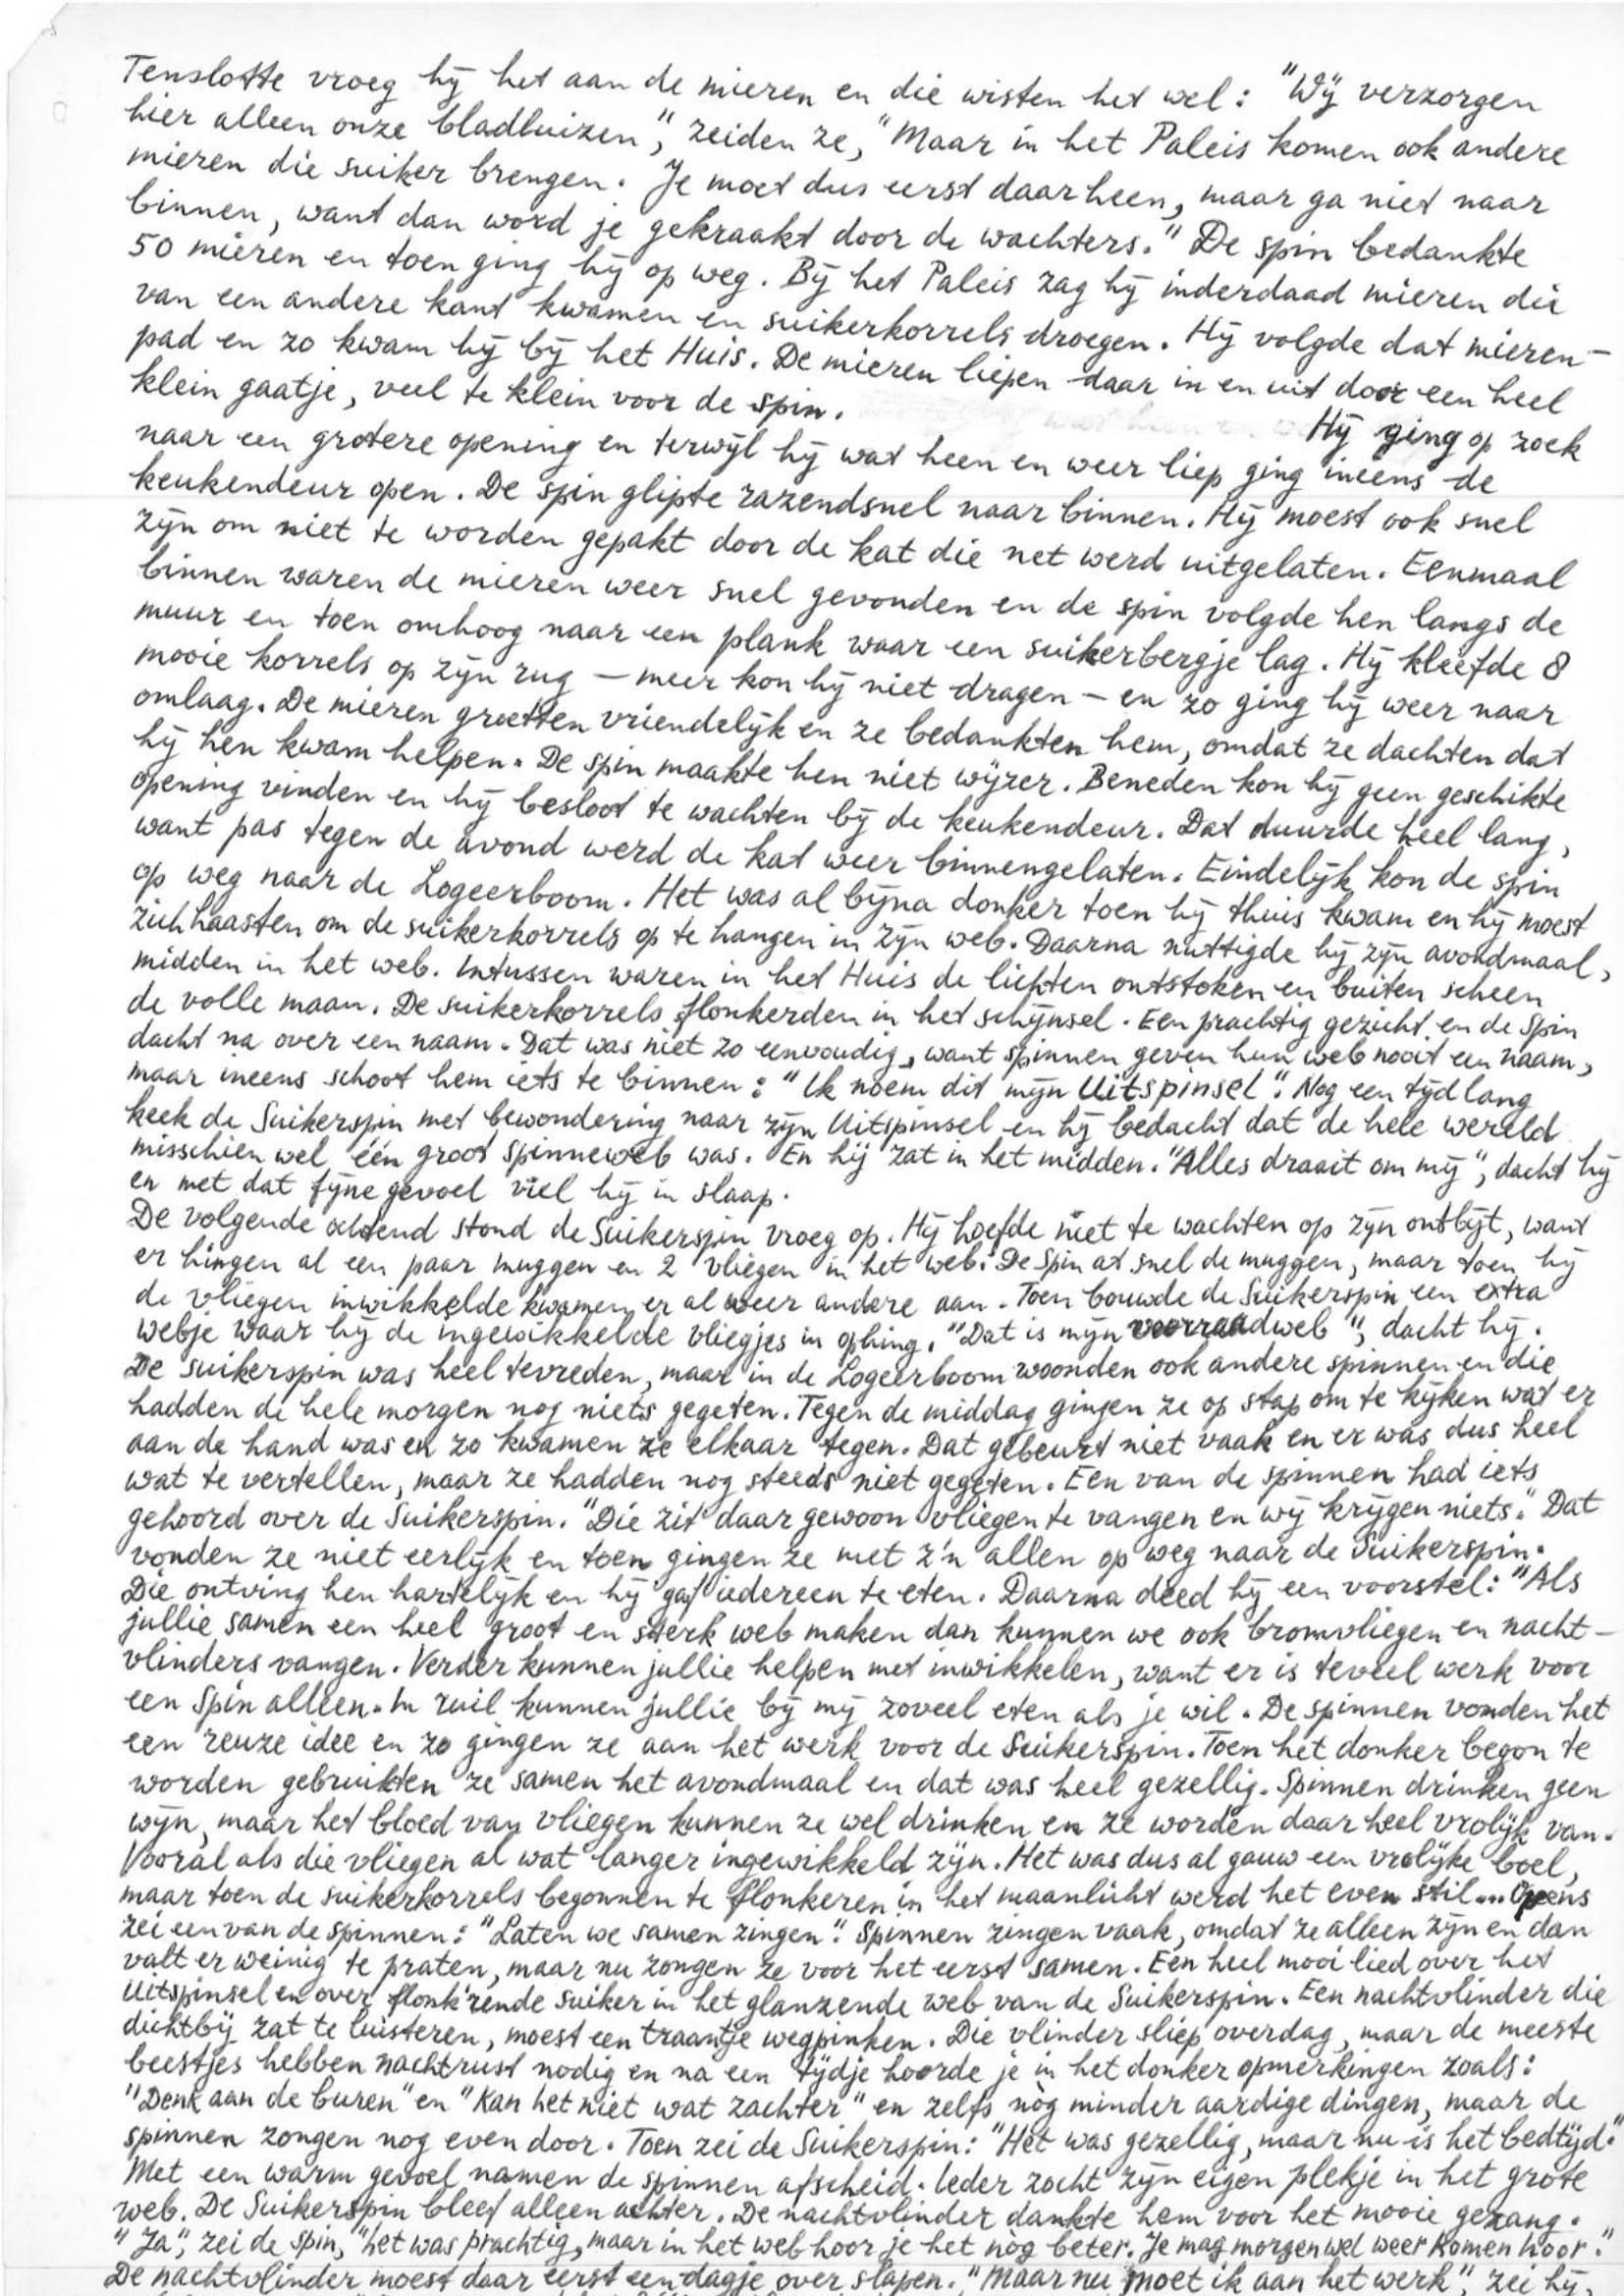 Tenslotte vroeg hij het aan de mieren en die wisten het wel: "Wij verzorgen
hier alleen onze bladluizen", zeiden ze, "Maar in het Paleis komen ook andere
mieren die suiker brengen. Je moet dus eerst daarheen, maar ga niet naar
binnen, want dan word je gekraakt door de wachters." De spin bedankte
50 mieren en toen ging hij op weg. Bij het Paleis zag hij inderdaad mieren die
van een andere kant kwamen en suikerkorrels droegen. Hij volgde dat mieren-
pad en zo kwam hij bij het Huis. De mieren liepen daar in en uit door een heel
klein gaatje, veel te klein voor de spin.
Hij ging op zoek
naar een grotere opening en terwijl hij wat heen en weer liep ging ineens de
keukendeur open. De spin glipte razendsnel naar binnen. Hij moest ook snel
zijn om niet te worden gepakt door de kat die net werd uitgelaten. Eenmaal
binnen waren de mieren weer snel gevonden en de spin volgde hen langs de
muur en toen omhoog naar een plank waar een suikerbergje lag. Hij kleefde 8
mooie korrels op zijn rug - meer kon hij niet dragen - en zo ging hij weer naar
omlaag. De mieren groetten vriendelijk en ze bedankten hem, omdat ze dachten dat
hij hen kwam helpen. De spin maakte hen niet wijzer. Beneden kon hij geen geschikte
opening vinden en hij besloot te wachten bij de keukendeur. Dat duurde heel lang,
want pas tegen de avond werd de kat weer binnengelaten. Eindelijk kon de spin
op weg naar de Logeerboom. Het was al bijna donker toen hij thuis kwam en hij moest
zich haasten om de suikerkorrels op te hangen in zijn web. Daarna nuttigde hij zijn avondmaal,
midden in het web. Intussen waren in het Huis de lichten ontstoken en buiten scheen
de volle maan. De suikerkorrels flonkerden in het schijnsel. Een prachtig gezicht en de Spin
dacht na over een naam. Dat was niet zo eenvoudig, want spinnen geven hun web nooit een naam,
maar ineens schoot hem iets te binnen: "Ik noem dit mijn Uitspinsel". Nog een tijd lang
keek de Suikerspin met bewondering naar zijn Uitspinsel en hij bedacht dat de hele wereld
misschien wel één groot spinneweb was. En hij zat in het midden. "Alles draait om mij", dacht hij
en met dat fijne gevoel viel hij in slaap.
De volgende ochtend stond de Suikerspin vroeg op. Hij hoefde niet te wachten op zijn ontbijt, want
er hingen al een paar muggen en 2 vliegen in het web. De Spin at snel de muggen, maar toen hij
de vliegen inwikkelde kwamen er al weer andere aan. Toen bouwde de Suikerspin een extra
webje waar hij de ingewikkelde vliegjes in ophing. "Dat is mijn voorraadweb", dacht hij.
De suikerspin was heel tevreden, maar in de Logeerboom woonden ook andere spinnen en die
hadden de hele morgen nog niets gegeten. Tegen de middag gingen ze op stap om te kijken wat er
aan de hand was en zo kwamen ze elkaar tegen. Dat gebeurt niet vaak en er was dus heel
wat te vertellen, maar ze hadden nog steeds niet gegeten. Een van de spinnen had iets
gehoord over de Suikerspin. "Die zit daar gewoon vliegen te vangen en wij krijgen niets." Dat
vonden ze niet eerlijk en toen gingen ze met z'n allen op weg naar de Suikerspin.
Die ontving hen hartelijk en hij gaf iedereen te eten. Daarna deed hij een voorstel: "Als
jullie samen een heel groot en sterk web maken dan kunnen we ook bromvliegen en nacht-
vlinders vangen. Verder kunnen jullie helpen met inwikkelen, want er is teveel werk voor
een Spin alleen. In ruil kunnen jullie bij mij zoveel eten als je wil. De spinnen vonden het
een reuze idee en zo gingen ze aan het werk voor de Suikerspin. Toen het donker begon te
worden gebruikten ze samen het avondmaal en dat was heel gezellig. Spinnen drinken geen
wijn, maar het bloed van vliegen kunnen ze wel drinken en ze worden daar heel vrolijk van.
Vooral als die vliegen al wat langer ingewikkeld zijn. Het was dus al gauw een vrolijke boel,
maar toen de suikerkorrels begonnen te flonkeren in het maanlicht werd het even stil... Opeens
zei een van de spinnen: "Laten we samen zingen". Spinnen zingen vaak, omdat ze alleen zijn en dan
valt er weinig te praten, maar nu zongen ze voor het eerst samen. Een heel mooi lied over het
Uitspinsel en over flonk'rende suiker in het glanzende web van de Suikerspin. Een nachtvlinder die
dichtbij zat te luisteren, moest een traantje wegpinken. Die vlinder sliep overdag, maar de meeste
beestjes hebben nachtrust nodig en na een tijdje hoorde je in het donker opmerkingen zoals:
"Denk aan de buren" en "Kan het niet wat zachter" en zelfs nòg minder aardige dingen, maar de
spinnen zongen nog even door. Toen zei de Suikerspin: "Het was gezellig, maar nu is het bedtijd."
Met een warm gevoel namen de spinnen afscheid. Ieder zocht zijn eigen plekje in het grote
web. De Suikerspin bleef alleen achter. De nachtvlinder dankte hem voor het mooie gezang.
"Ja", zei de spin, "het was prachtig, maar in het web hoor je het nòg beter. Je mag morgen wel weer komen hoor."
De nachtvlinder moest daar eerst een dagje over slapen. "Maar nu moet ik aan het werk" zei hij,